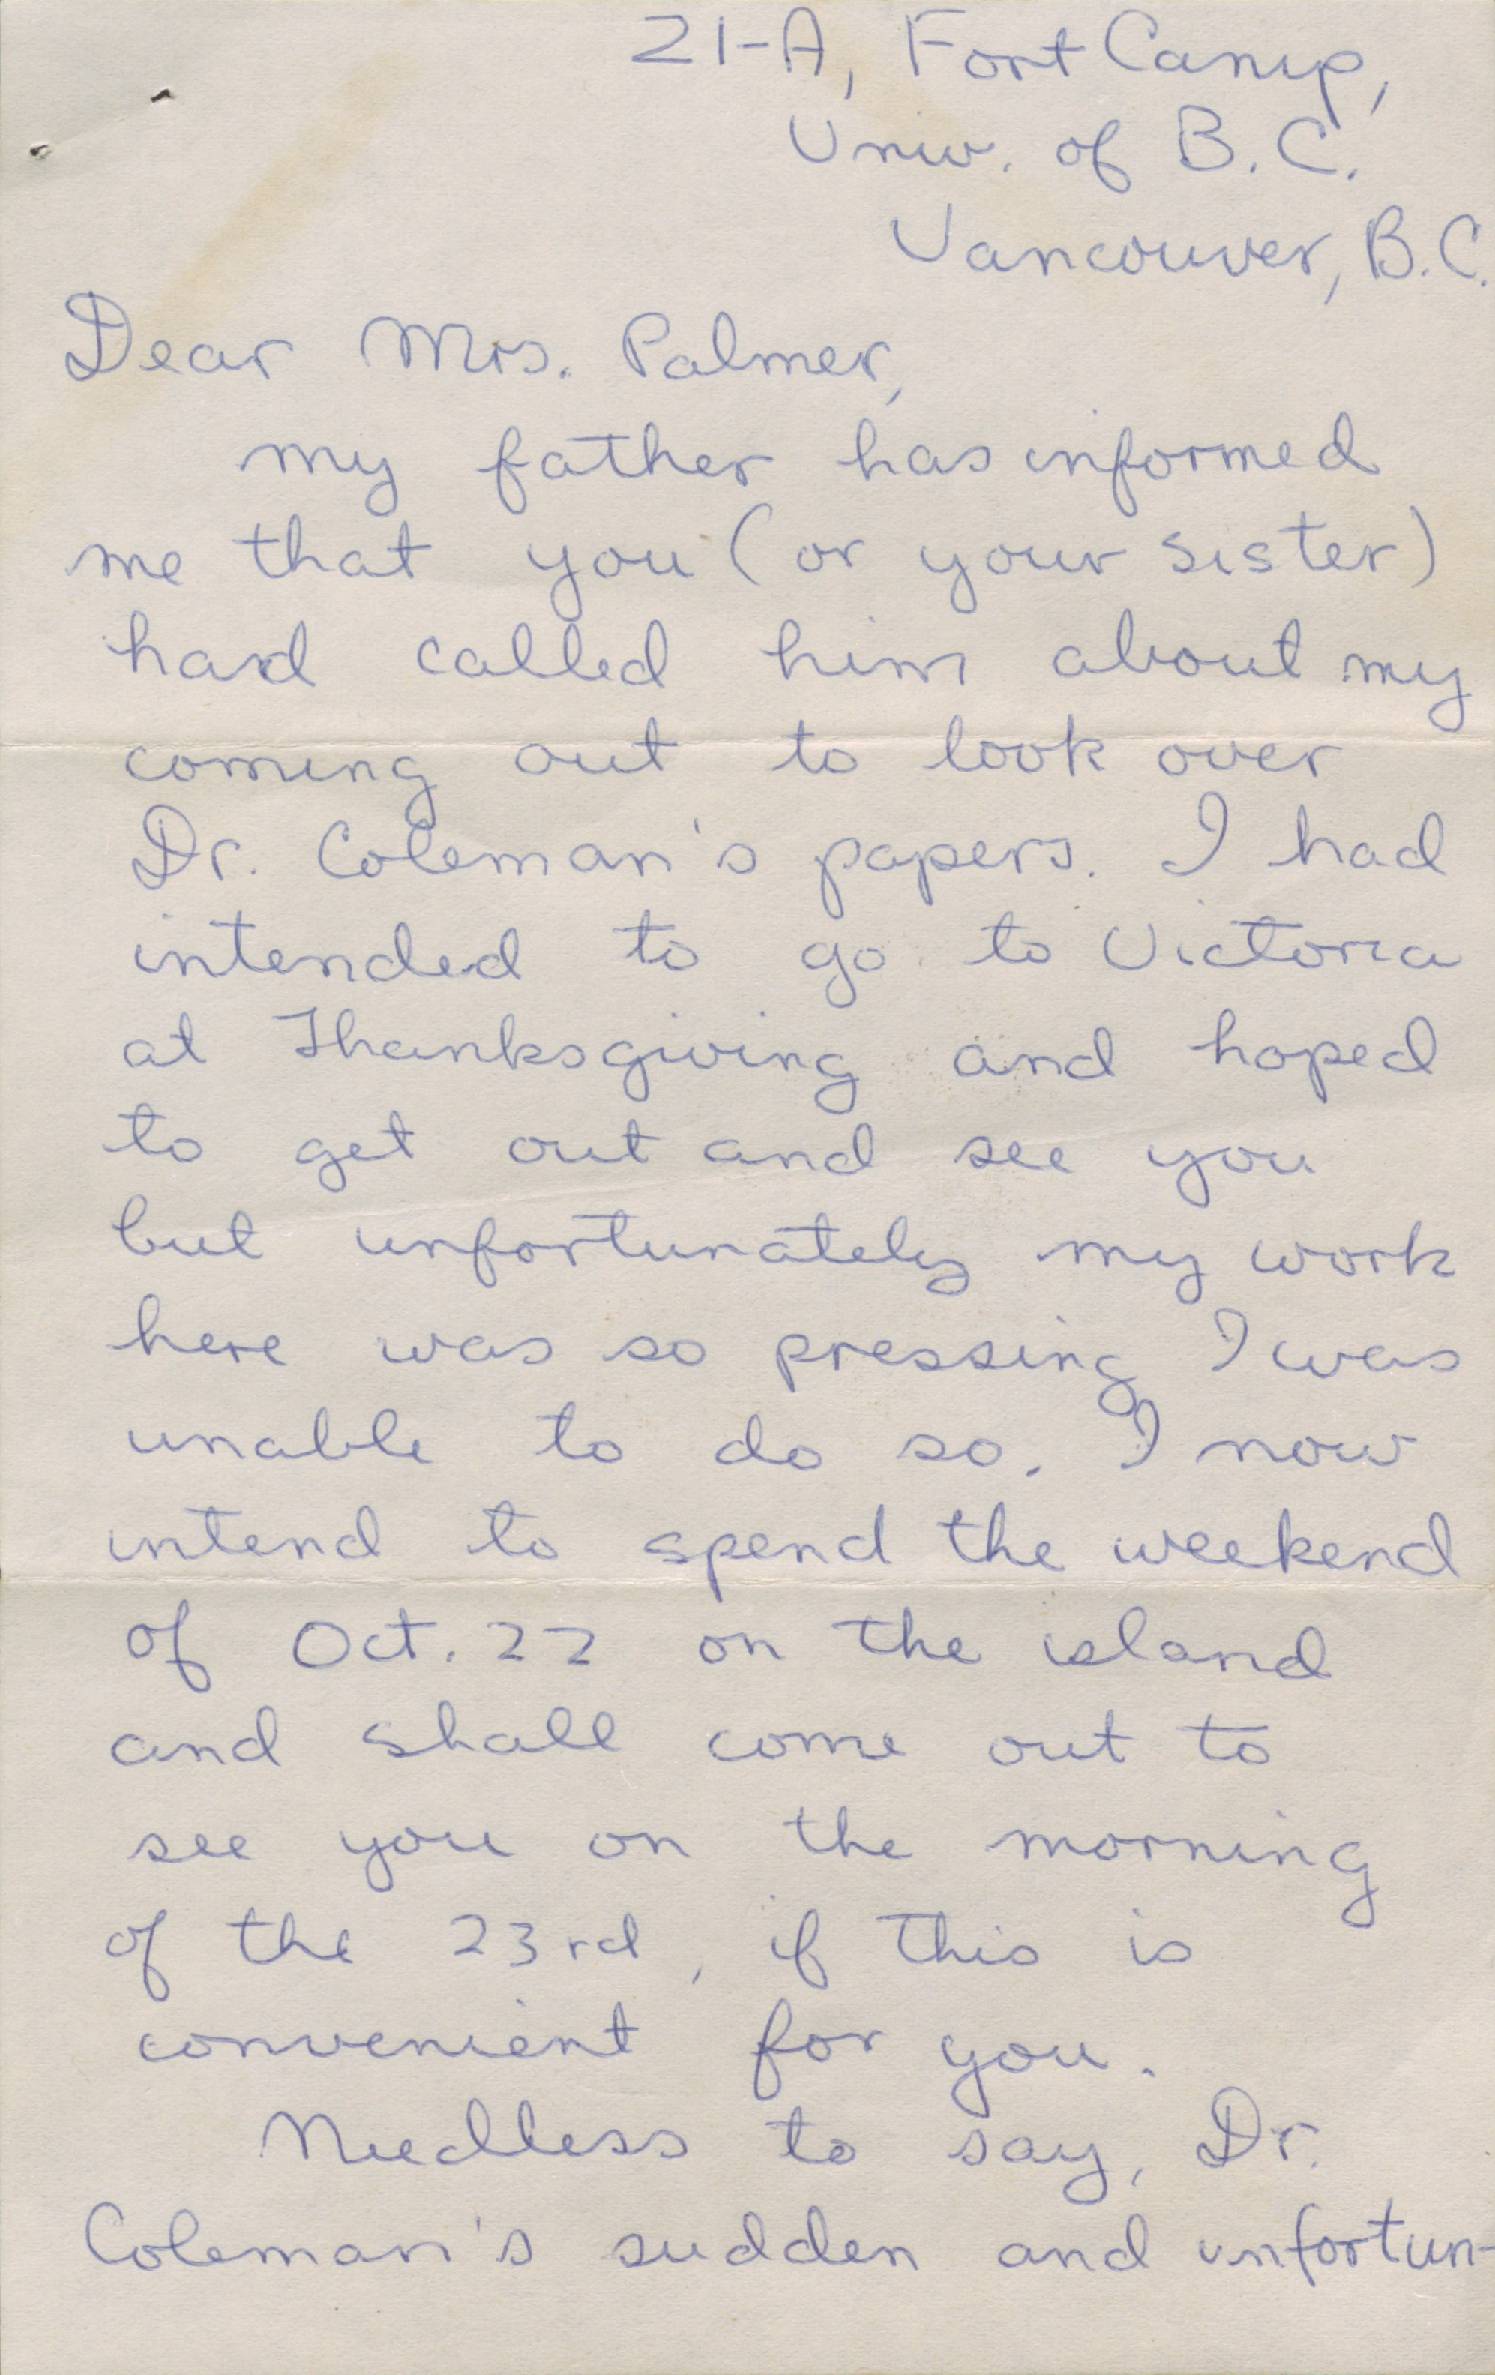 21-A, Fort Camp,
Univ. of B.C.
Vancouver, B.C.
Dear Mrs. Palmer,
my father has informed
me that you (or your sister)
had called him about my
coming out to look over
Dr. Coleman's papers. I had
intended to go to Victoria
at Thanksgiving and hoped
to get out and see you
but unfortunately my work
here was so pressing I was
unable to do so. I now
intend to spend the weekend
of Oct. 22 on the island
and shall come out to
see you on the morning
of the 23rd, if this is
convenient for you.
Needless to say, Dr.
Coleman's sudden and unfortun-